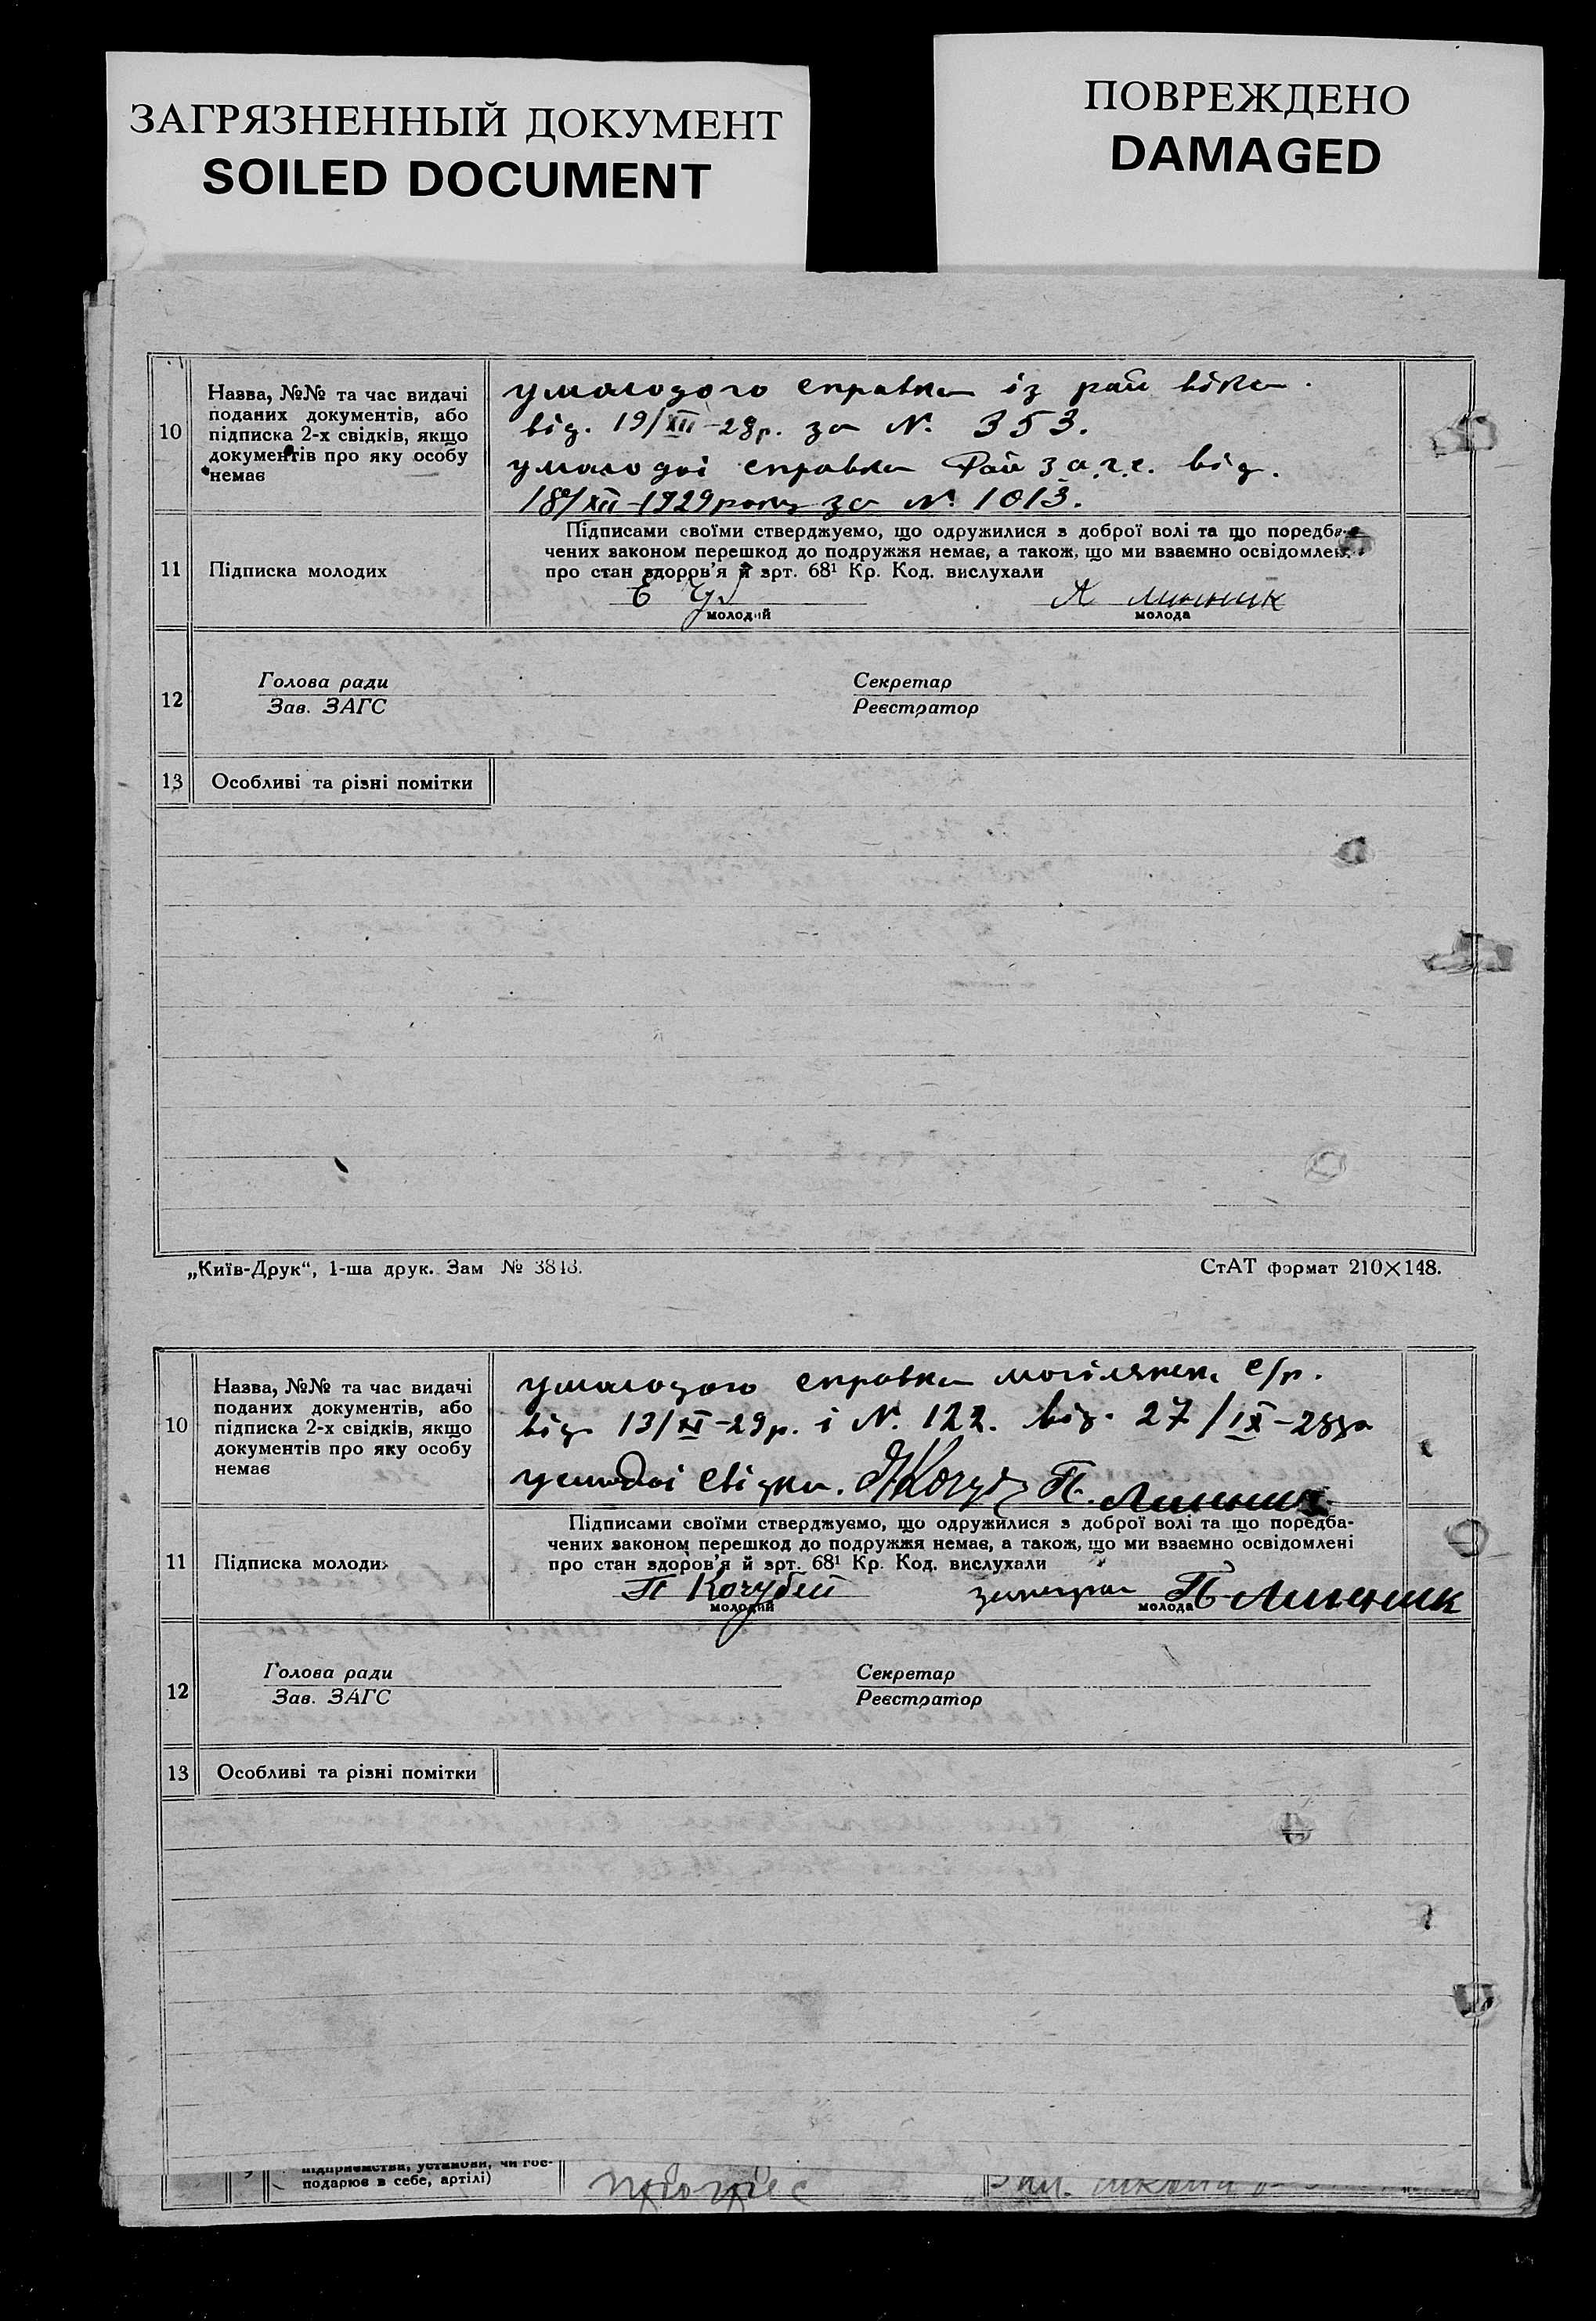 ЗАГРЯЗНЕННЫЙ ДОКУМЕНТ
SOILED DOCUMENT
ПОВРЕЖДЕНО
DAMAGED
10
Назва, №№ та час видачі
поданих документів, або
підписка 2-х свідків, якщо
документів про яку особу
немає
умолодого справка із рай
від. 19/XII-28р. за №. 353.
умолодої справка Рай загс. від.
18/XII-1929 року за № 1013.
11
Підписка молодих
Підписами своїми стверджуємо, що одружилися з доброї волі та що передба-
чених законом перешкод до подружжя немає, а також, що ми взаємно освідомлені
про стан здоров'я й арт. 68¹ Кр. Код. вислухали
А Линник
молодий
молода
12
Голова ради
Зав. ЗАГС
Секретар
Реєстратор
13
Особливі та різні помітки
„Київ-Друк“, 1-ша друк. Зам № 3848.
СтАТ формат 210×148.
10
Назва, №№ та час видачі
поданих документів, або
підписка 2-х свідків, якщо
документів про яку особу
немає
умолодого справка с/р.
від 13/XI-29р. і №. 122. від. 27/IX-28
умолодої свідки. П. Линник
11
Підписка молодих
Підписами своїми стверджуємо, що одружилися з доброї волі та що передба-
чених законом перешкод до подружжя немає, а також, що ми взаємно освідомлені
про стан здоров'я й арт. 68¹ Кр. Код. вислухали
П Кочубей
П Линник
молодий
молода
12
Голова ради
Зав. ЗАГС
Секретар
Реєстратор
13
Особливі та різні помітки
підприємства, установи, чи гос-
подарює в себе, артілі)